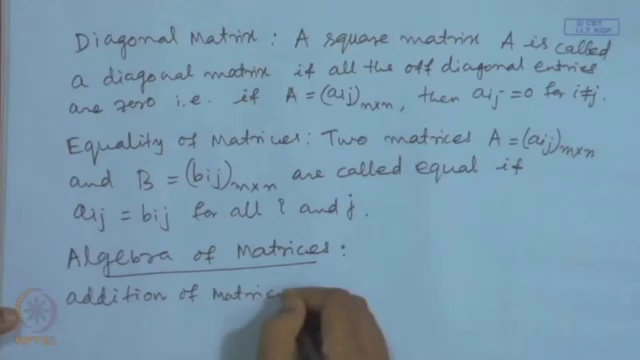 © CET
I.I.T. KGP
Diagonal Matrix : A square matrix A is called
a diagonal matrix if all the off diagonal entries
are zero i.e. if A = (aij)n×n, then aij = 0 for i≠j.
Equality of Matrices: Two matrices A = (aij)m×n
and B = (bij)m×n are called equal if
aij = bij for all i and j.
Algebra of Matrices :
addition of Matric
NPTEL